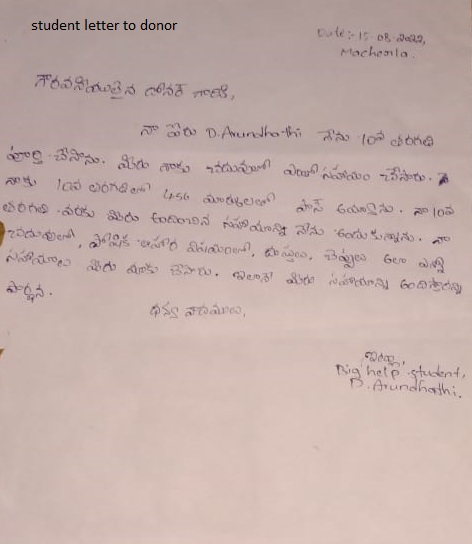 student letter to donor
Date:- 15-08-2022,
Macherla.
గౌరవనీయులైన డోనర్ గారికి,
నా పేరు D.Arundhathi నేను 10వ తరగతి
పూర్తి చేసాను. మీరు నాకు చదువులో ఎంతో సహాయం చేసారు.
నాకు 10వ తరగతిలో 456 మార్కులలతో పాస్ అయ్యాను. నా 10వ
తరగతి వరకు మీరు అందించిన సహాయాన్ని నేను అందుకున్నాను. నా
చదువులో, పోషిక ఆహార విషయంలో, దుస్తులు, చెప్పులు ఇలా ఎన్నో
సహాయాలు మీరు మాకు చేసారు. ఇలానే మీరు సహాయాన్ని
ధన్యవాదములు,
ఇట్లు,
Big help student,
D. Arundhathi.